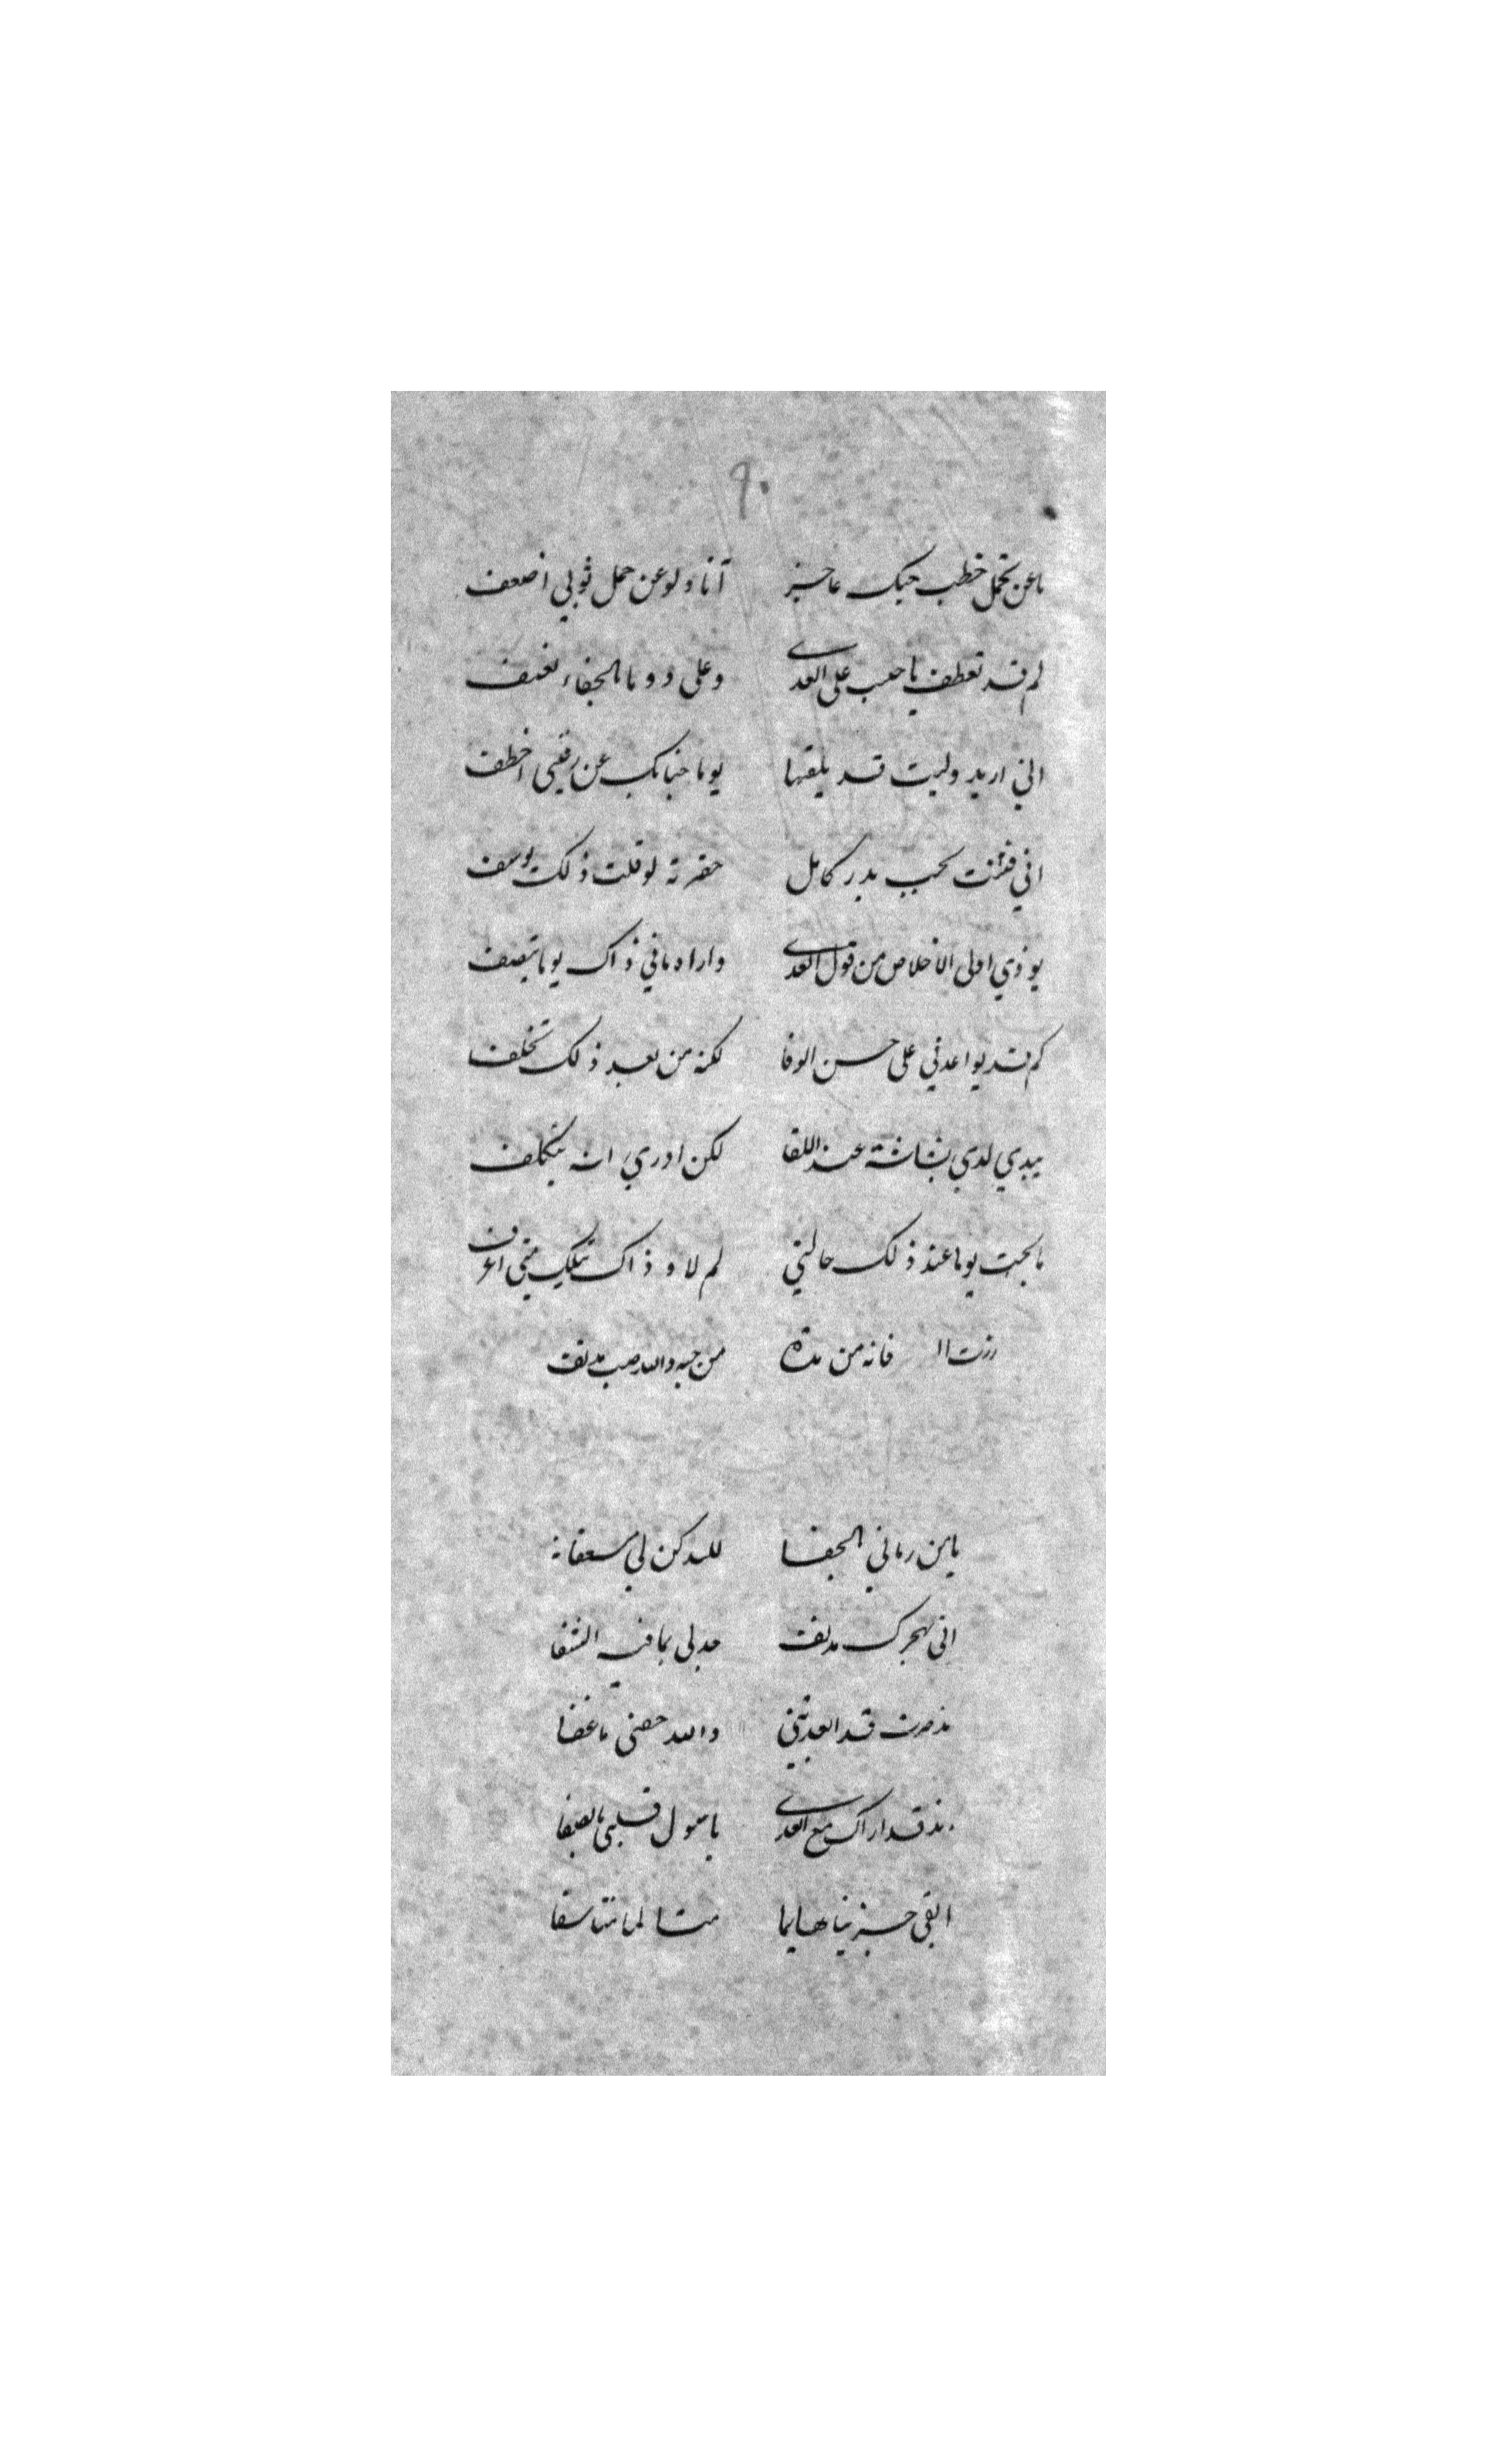 ٩٠
ما عن تحمل خطب حبك عاجز انا ولو عن حمل ثوبي اضعف
لم قد تعطف يا حبيب على العدى وعلى دوما بالجفاء تعنف
اني اريد وليت قد يلقها يوما جنابك عن رقيبي اخطف
اني فتنت بحب بدر كامل حقرته لو قلت ذلك يوسف
يوذي اولى الاخلاص من قول العدى واراه مافي ذاك يوما ينصف
كم قد يواعدني على حسن الوفا لكنه من بعد ذلك تخلف
يبدي لدي بشاشة عند اللقا لكن ادري انه يتكلف
ما بحت يوما عند ذلك حالتي لم لا و ذاك بتلك مني اعرف
فانه من مدة من حبه والله صب مدنف
يا من رماني بالجفا لله كن لي مسعفا
اني بهجرك مدنف جد لي بما فيه الشفا
مذ صرت قد ابعدتني والله جفني ما غفا
مذ قد اراك مع العدى يا سول قلبي بالصفا
ابقى حزينا هايما متالما متاسفا